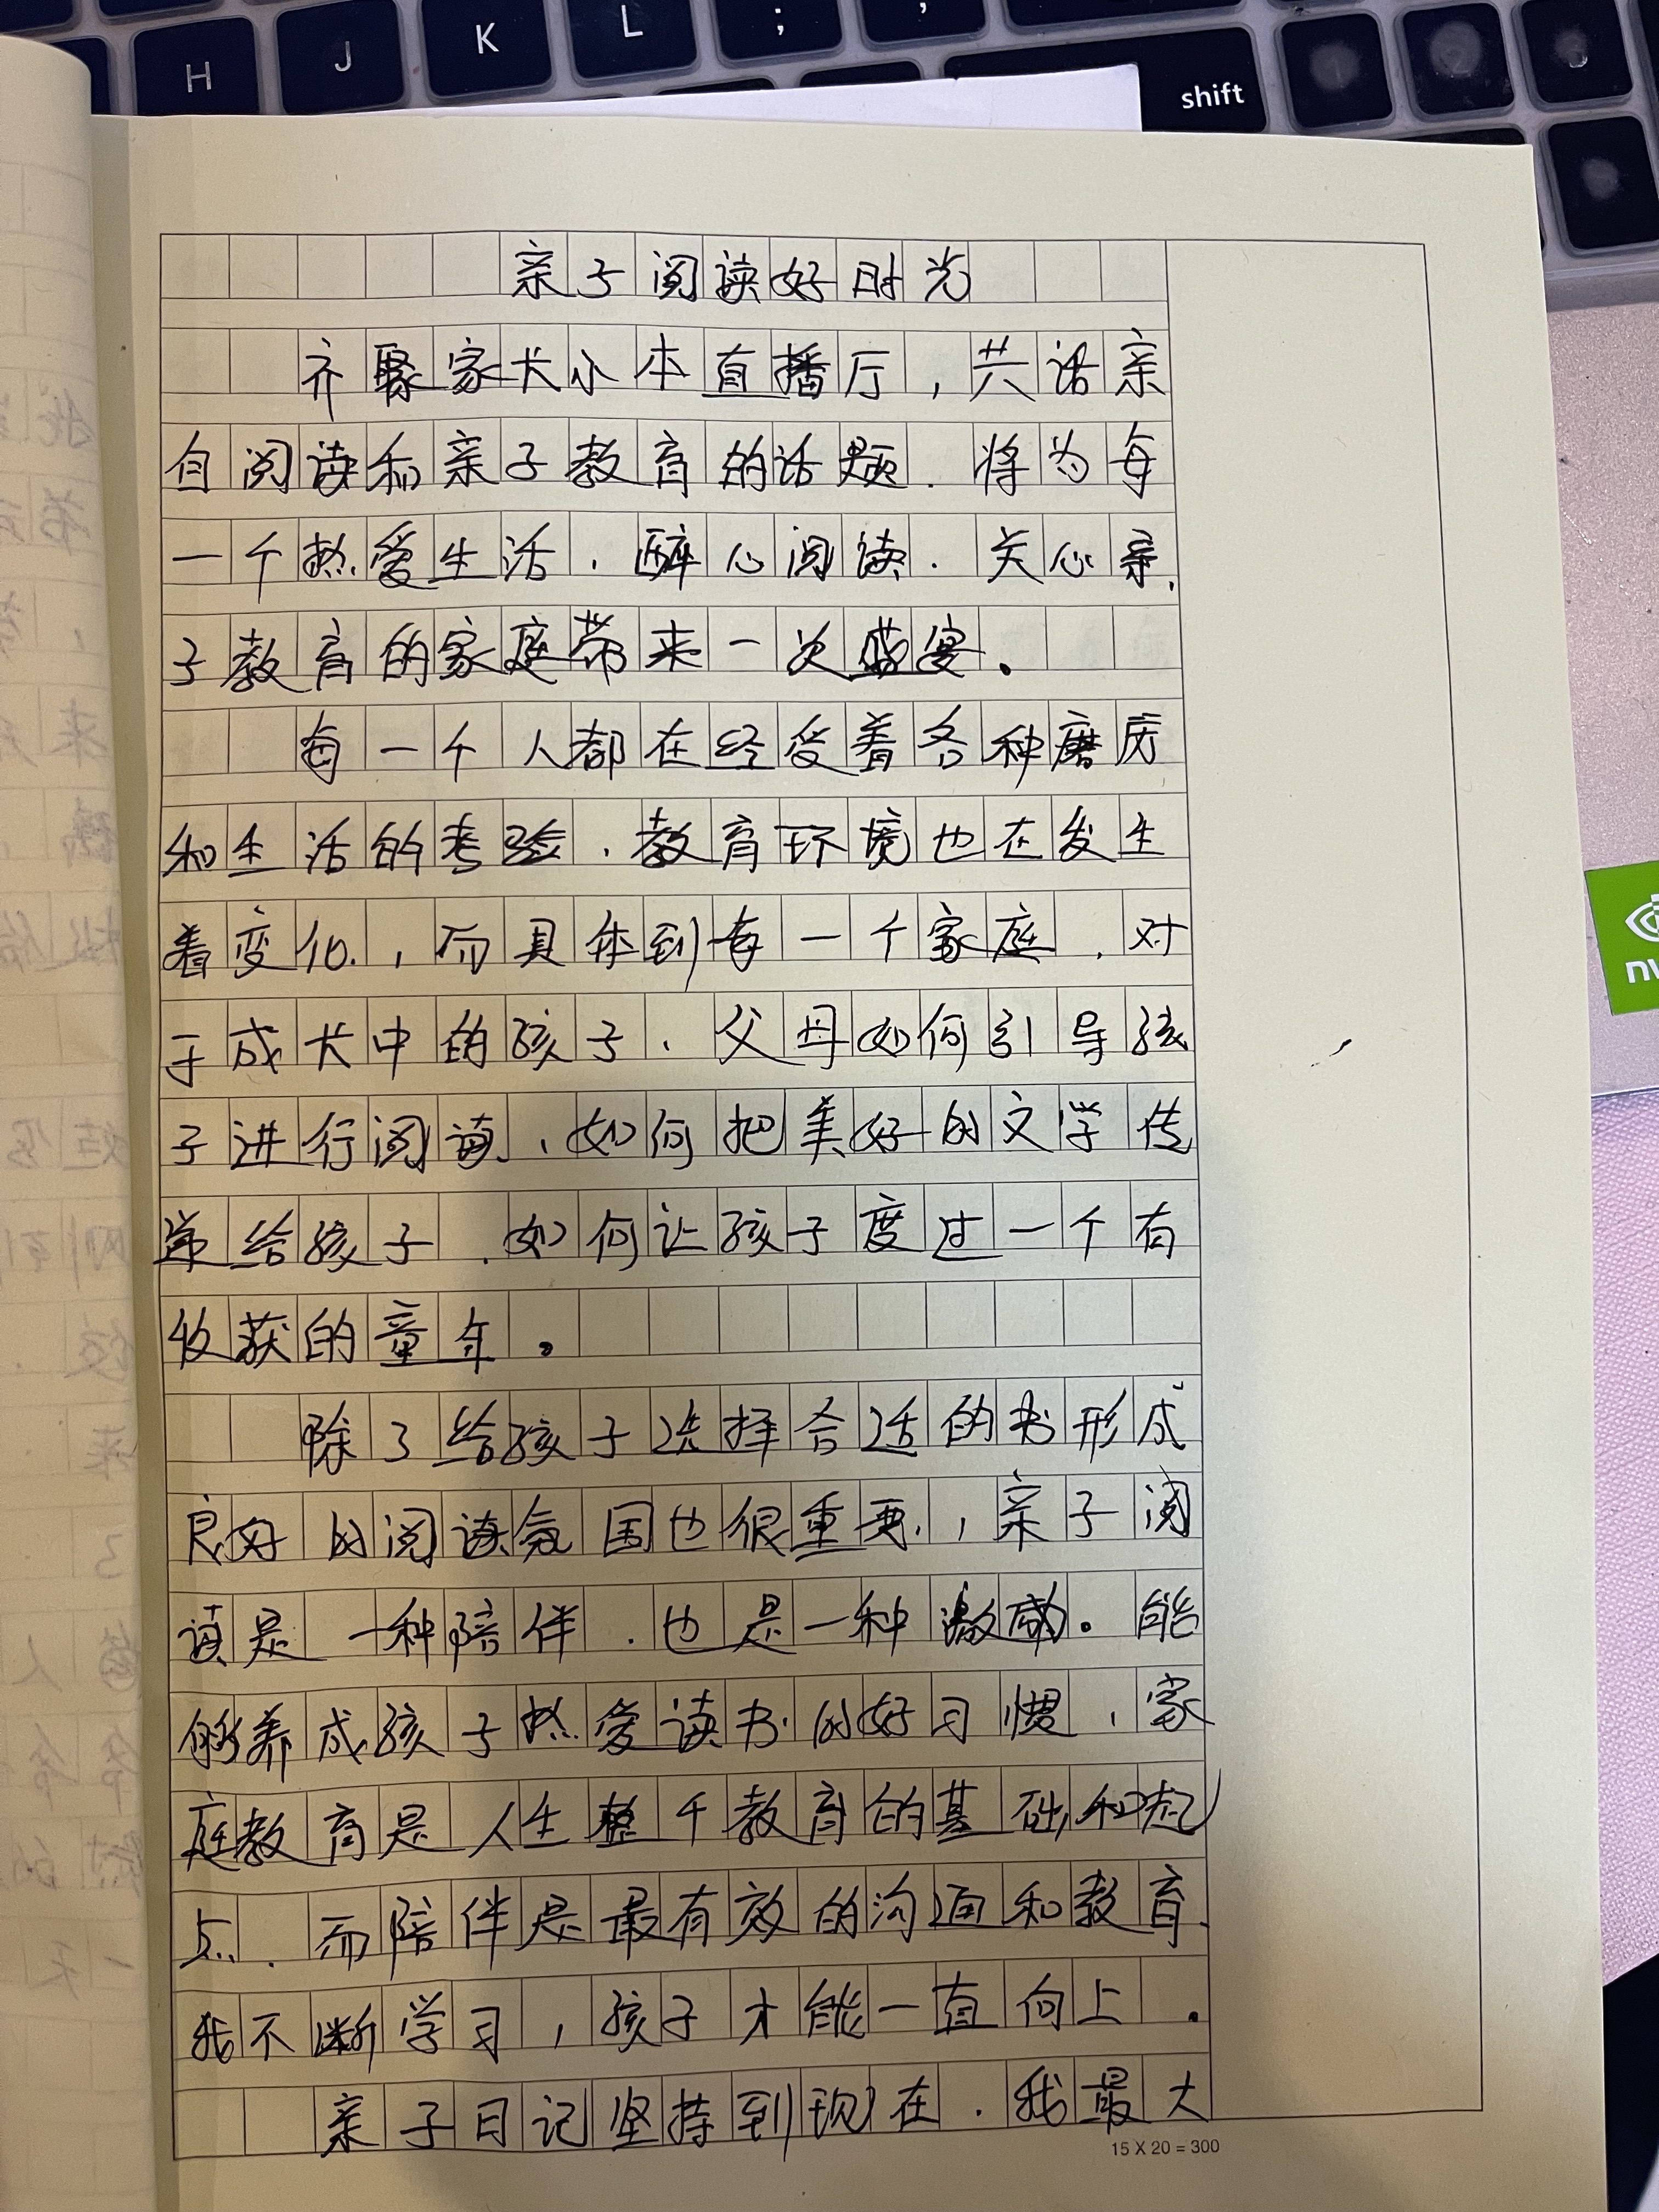 H J K L ; '
shift
亲子阅读好时光
齐聚家长小本直播厅,共话亲
自阅读和亲子教育的话题.将为每
一个热爱生活.醉心阅读.关心亲
子教育的家庭带来一次盛宴。
每一个人都在经受着各种磨厉
和生活的考验.教育环境也在发生
着变化,而具体到每一个家庭.对
于成长中的孩子.父母如何引导孩
子进行阅读,如何把美好的文学传
递给孩子.如何让孩子度过一个有
收获的童年。
除了给孩子选择合适的书形成
良好的阅读氛围也很重要,亲子阅
读是一种陪伴.也是一种激励。能
够养成孩子热爱读书的好习惯,家
庭教育是人生整个教育的基础和起
点.而陪伴是最有效的沟通和教育.
我不断学习,孩子才能一直向上.
亲子日记坚持到现在.我最大
15 X 20 = 300